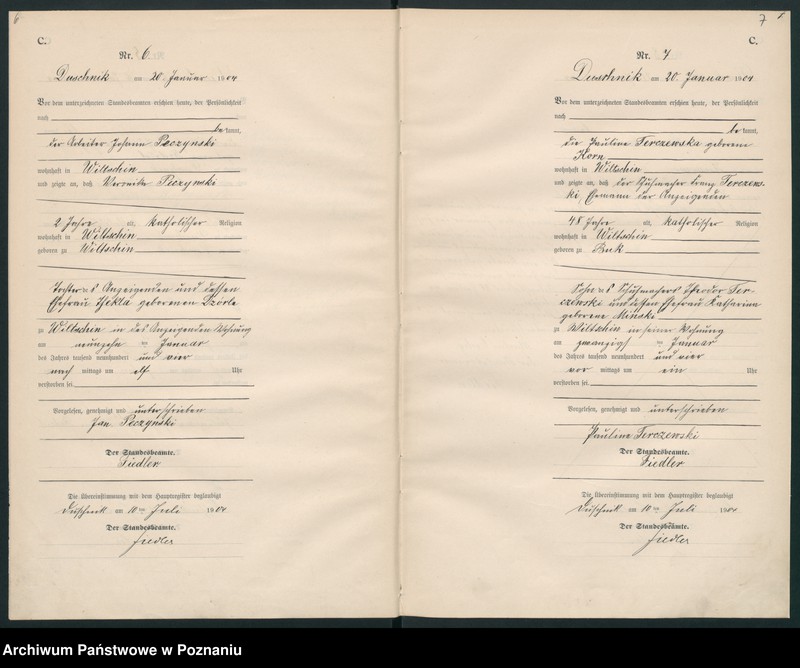 6
C.
Nr. 6
Duschnik am 20. Januar 1904
Vor dem unterzeichneten Standesbeamten erschien heute, der Persönlichkeit
nach
bekannt,
der Arbeiter Johann Peczynski
wohnhaft in Wiltschin
und zeigte an, daß Veronika Peczynski
2 Jahre alt, katholischer Religion
wohnhaft in Wiltschin
geboren zu Wiltschin
Tochter des Anzeigenden und dessen
Ehefrau Thekla geborenen
zu Wiltschin in des Anzeigenden Wohnung
am neunzehn ten Januar
des Jahres tausend neunhundert und vier
nach mittags um elf Uhr
verstorben sei.
Vorgelesen, genehmigt und unterschrieben
Jan Peczyński
Der Standesbeamte.
Fiedler
Die Übereinstimmung mit dem Hauptregister beglaubigt
Duschnik am 10ten Juli 1904
Der Standesbeamte.
Fiedler
7
C.
Nr. 7
Duschnik am 20. Januar 1904
Vor dem unterzeichneten Standesbeamten erschien heute, der Persönlichkeit
nach
bekannt,
die Pauline Terczewska geborene
Korn
wohnhaft in Wiltschin
und zeigte an, daß der Schuhmacher Franz Terczews-
ki, Ehemann der Anzeigenden
48 Jahre alt, katholischer Religion
wohnhaft in Wiltschin
geboren zu Buk
Sohn des Schuhmachers Theodor Ter-
czewski und dessen Ehefrau Katharina
geborene Minski
zu Wiltschin in seiner Wohnung
am zwanzigsten Januar
des Jahres tausend neunhundert und vier
vor mittags um ein Uhr
verstorben sei.
Vorgelesen, genehmigt und unterschrieben
Pauline Terczewski
Der Standesbeamte.
Fiedler
Die Übereinstimmung mit dem Hauptregister beglaubigt
Duschnik am 10ten Juli 1904
Der Standesbeamte.
Fiedler
Archiwum Państwowe w Poznaniu